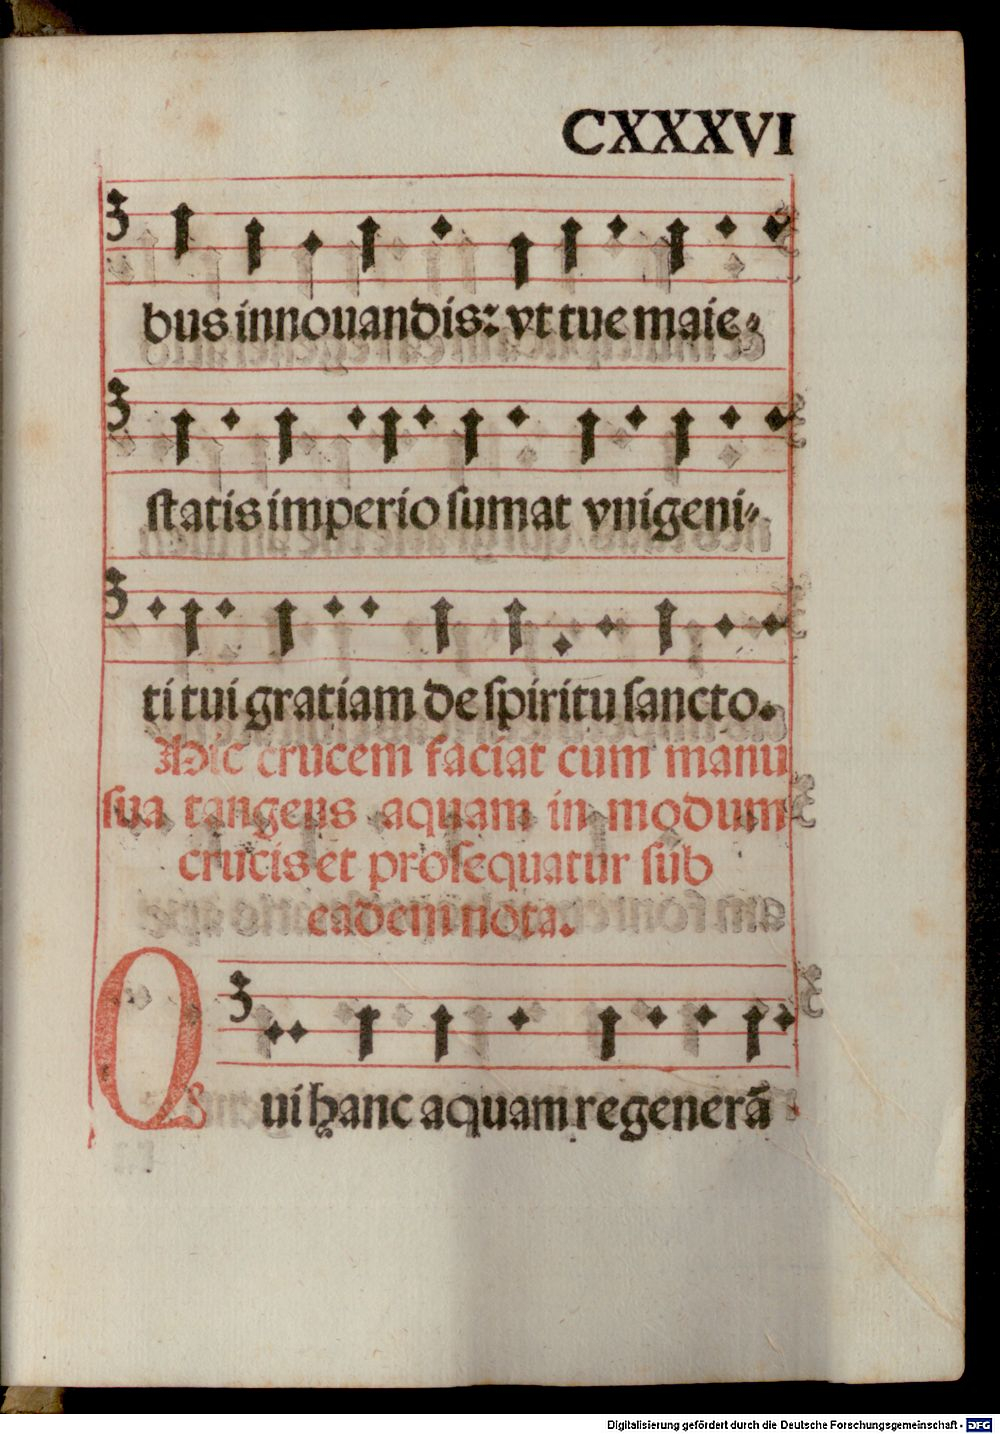 CXXXVI
bus innouandis: vt tue maie⸗
statis imperio sumat vnigeni⸗
ti tui gratiam de spiritu sancto.
Hic crucem faciat cum manu
sua tangens aquam in modum
crucis et prosequatur sub
eadem nota.
Qui hanc aquam regenerā
Digitalisierung gefördert durch die Deutsche Forschungsgemeinschaft - DFG